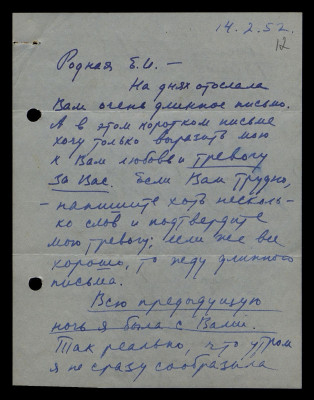 14.2.52.
12
Родная Е.И. —
На днях отослала
Вам очень длинное письмо.
А в этом коротком письме
хочу только выразить мою
к Вам любовь и тревогу
за Вас. Если Вам трудно,
— напишите хоть несколь-
ко слов и подтвердите
мою тревогу; если же все
хорошо, то жду длинного
письма.
Всю предыдущую
ночь я была с Вами.
Так реально, что утром
я не сразу сообразила